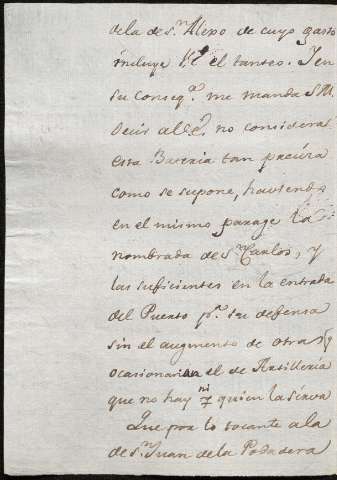 de la de S.n Alexo de cuyo gasto
incluye V.E. el tanteo. Y en
su conseq.a me manda S.M.
decir a V.E. no considera
esta Bateria tan precisa
como se supone, haviendo
en el mismo parage la
nombrada de S.n Carlos, y
las suficientes en la entrada
del Puerto p.a su defensa
sin el augmento de otra q.e
ocasionaria el de Artillería
que no hay ni quien la sirva
Que por lo tocante a la
de S.n Juan de la Podadera